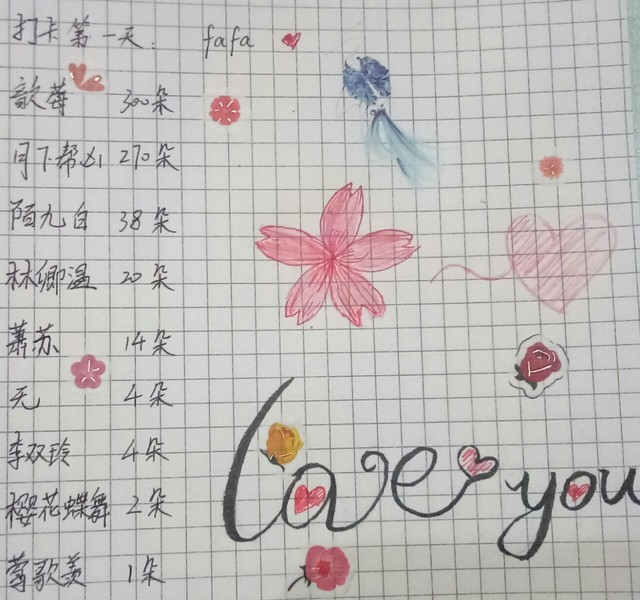 打卡第一天： fafa
歆莓 300朵
月下帮凶 270朵
陌九白 38朵
林卿温 20朵
萧苏 14朵
无 4朵
李双玲 4朵
樱花蝶舞 2朵
莺歌羡 1朵
Love you